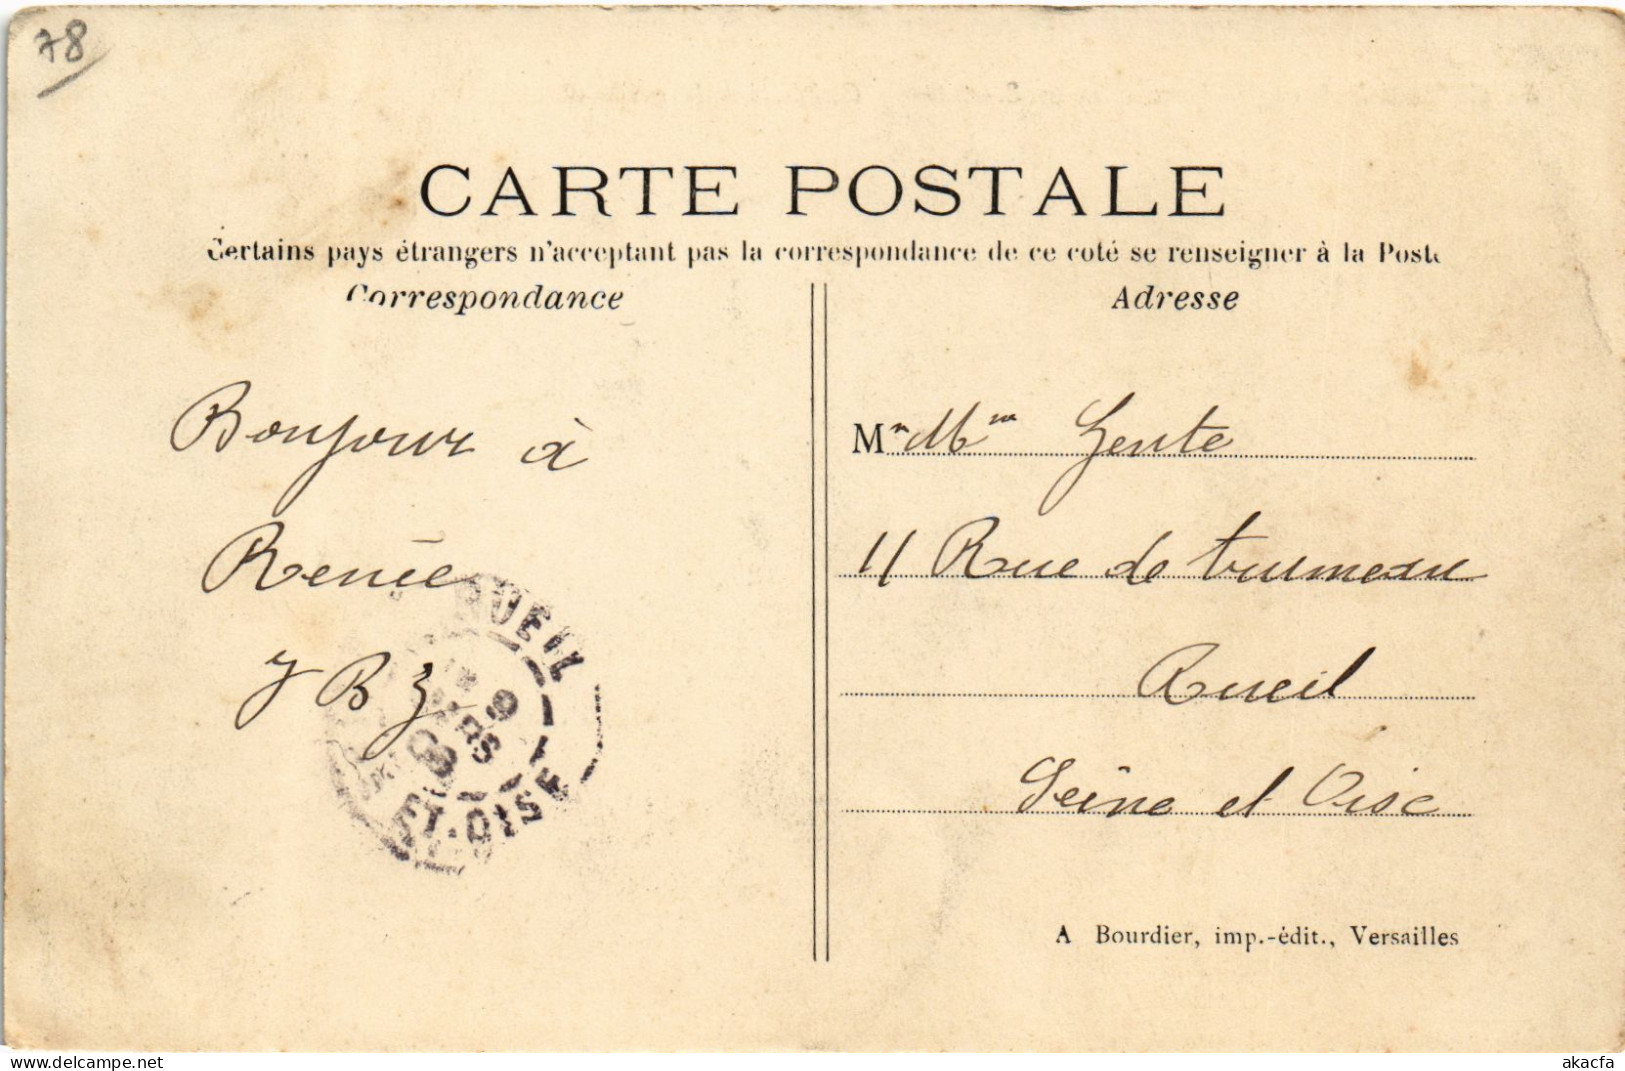 78
CARTE POSTALE
Certains pays étrangers n'acceptant pas la correspondance de ce coté se renseigner à la Poste
Correspondance
Adresse
Bonjour à
Renée
M
11 Rue de
Rueil
Seine et Oise
RUEIL
ET-OISE
A Bourdier, imp.-édit., Versailles
www.delcampe.net
akacfa